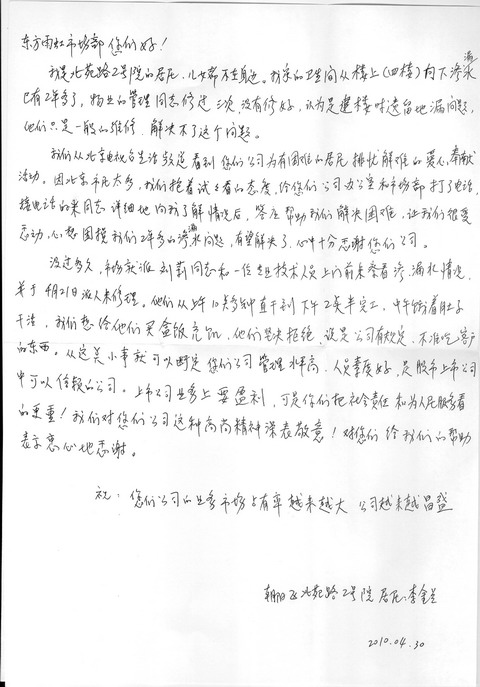 东方雨虹市场部您们好！
我是北苑路2号院的居民，儿女都不在身边。我家的卫生间从楼上(四楼)向下渗漏水
已有2年多了，物业的管理同志修过三次没有修好，认为是建楼时遗留地漏问题，
他们只是一般的维修，解决不了这个问题。
我们从北京电视台生活频道看到您们公司为有困难的居民排忧解难的爱心奉献
活动。因北京市民太多，我们抱着试试看的态度，给您们公司办公室和市场部打了电话，
接电话的宋同志详细地向我了解情况后，答应帮助我们解决困难，让我们很受
感动，心想困扰我们2年多的渗漏水问题，有望解决了，心中十分感谢您们公司。
没过多久，市场部派刘莉同志和一位老技术人员上门前来察看渗漏水情况，
并于4月21日派人来修理。他们从上午10点多钟一直干到下午2点半完工，中午饿着肚子
干活，我们想给他们买盒饭充饥，他们坚决拒绝，说是公司有规定，不准吃客户
的东西。从这美小事就可以断定您们公司管理水平高，人员素质好，是股市上市公司
中可以信赖的公司。上市公司业务上要盈利，可是你们把社会责任和为人民服务看
的更重！我们对您们公司这种高尚精神深表敬意！对您们给我们的帮助
表示衷心地感谢。
祝：您们公司的业务市场占有率越来越大 公司越来越昌盛
朝阳区北苑路2号院居民：李金兰
2010.04.30